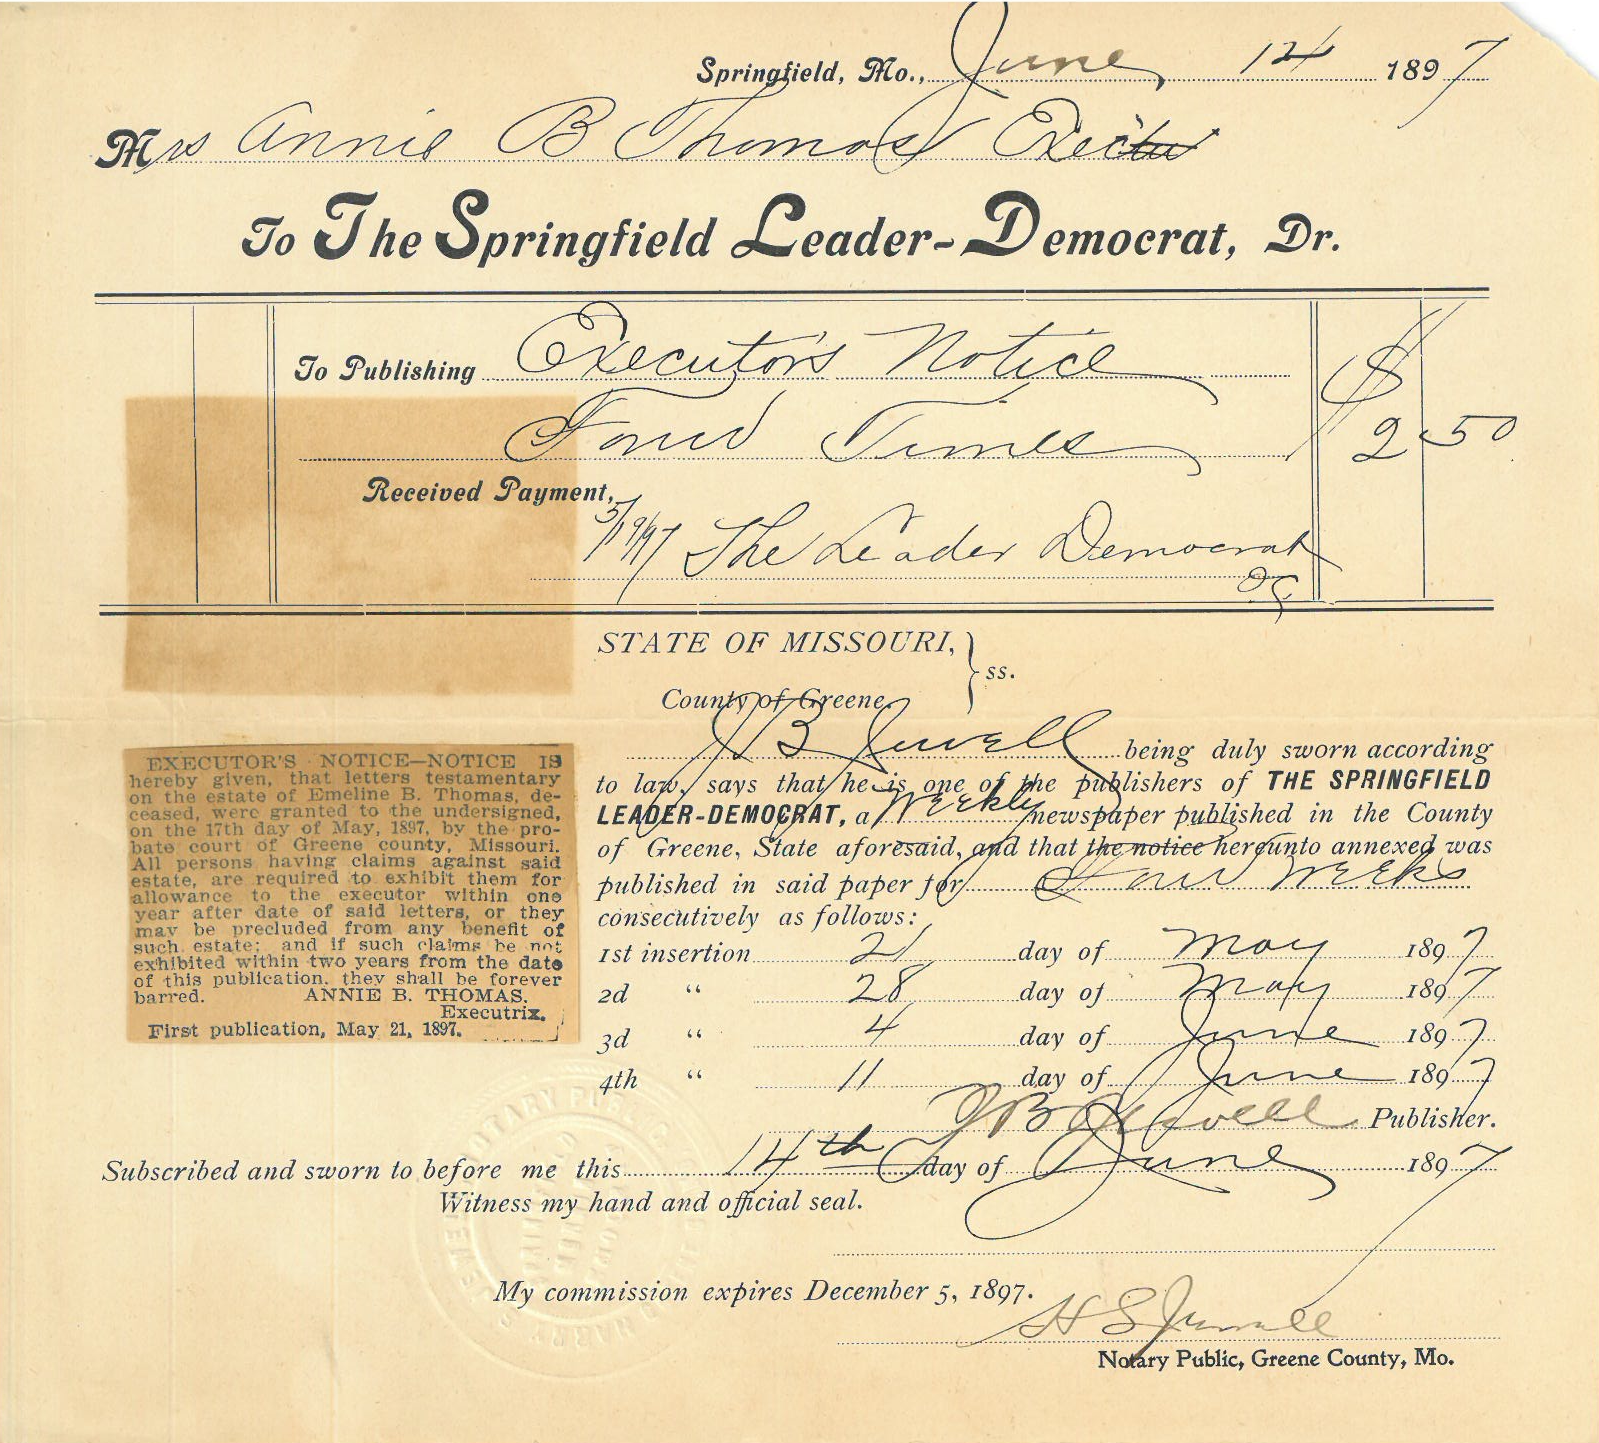 Springfield, Mo., June 14 1897
Mrs Annie B Thomas
To The Springfield Leader-Democrat, Dr.
To Publishing Executor's Notice $
Four Times 2 50
Received Payment,
5/19/97 The Leader Democrat
STATE OF MISSOURI,
County of Greene. } ss.
J B Jewell being duly sworn according
to law, says that he is one of the publishers of THE SPRINGFIELD
LEADER-DEMOCRAT, a Weekly newspaper published in the County
of Greene, State aforesaid, and that the notice hereunto annexed was
published in said paper for Four Weeks
consecutively as follows:
1st insertion 21 day of May 1897
2d " 28 day of May 1897
3d " 4 day of June 1897
4th " 11 day of June 1897
J B Jewell Publisher.
EXECUTOR'S NOTICE—NOTICE IS
hereby given, that letters testamentary
on the estate of Emeline B. Thomas, de-
ceased, were granted to the undersigned,
on the 17th day of May, 1897, by the pro-
bate court of Greene county, Missouri.
All persons having claims against said
estate, are required to exhibit them for
allowance to the executor within one
year after date of said letters, or they
may be precluded from any benefit of
such estate; and if such claims be not
exhibited within two years from the date
of this publication, they shall be forever
barred. ANNIE B. THOMAS.
Executrix.
First publication, May 21, 1897.
Subscribed and sworn to before me this 14th day of June 1897
Witness my hand and official seal.
My commission expires December 5, 1897.
H S Jewell
Notary Public, Greene County, Mo.